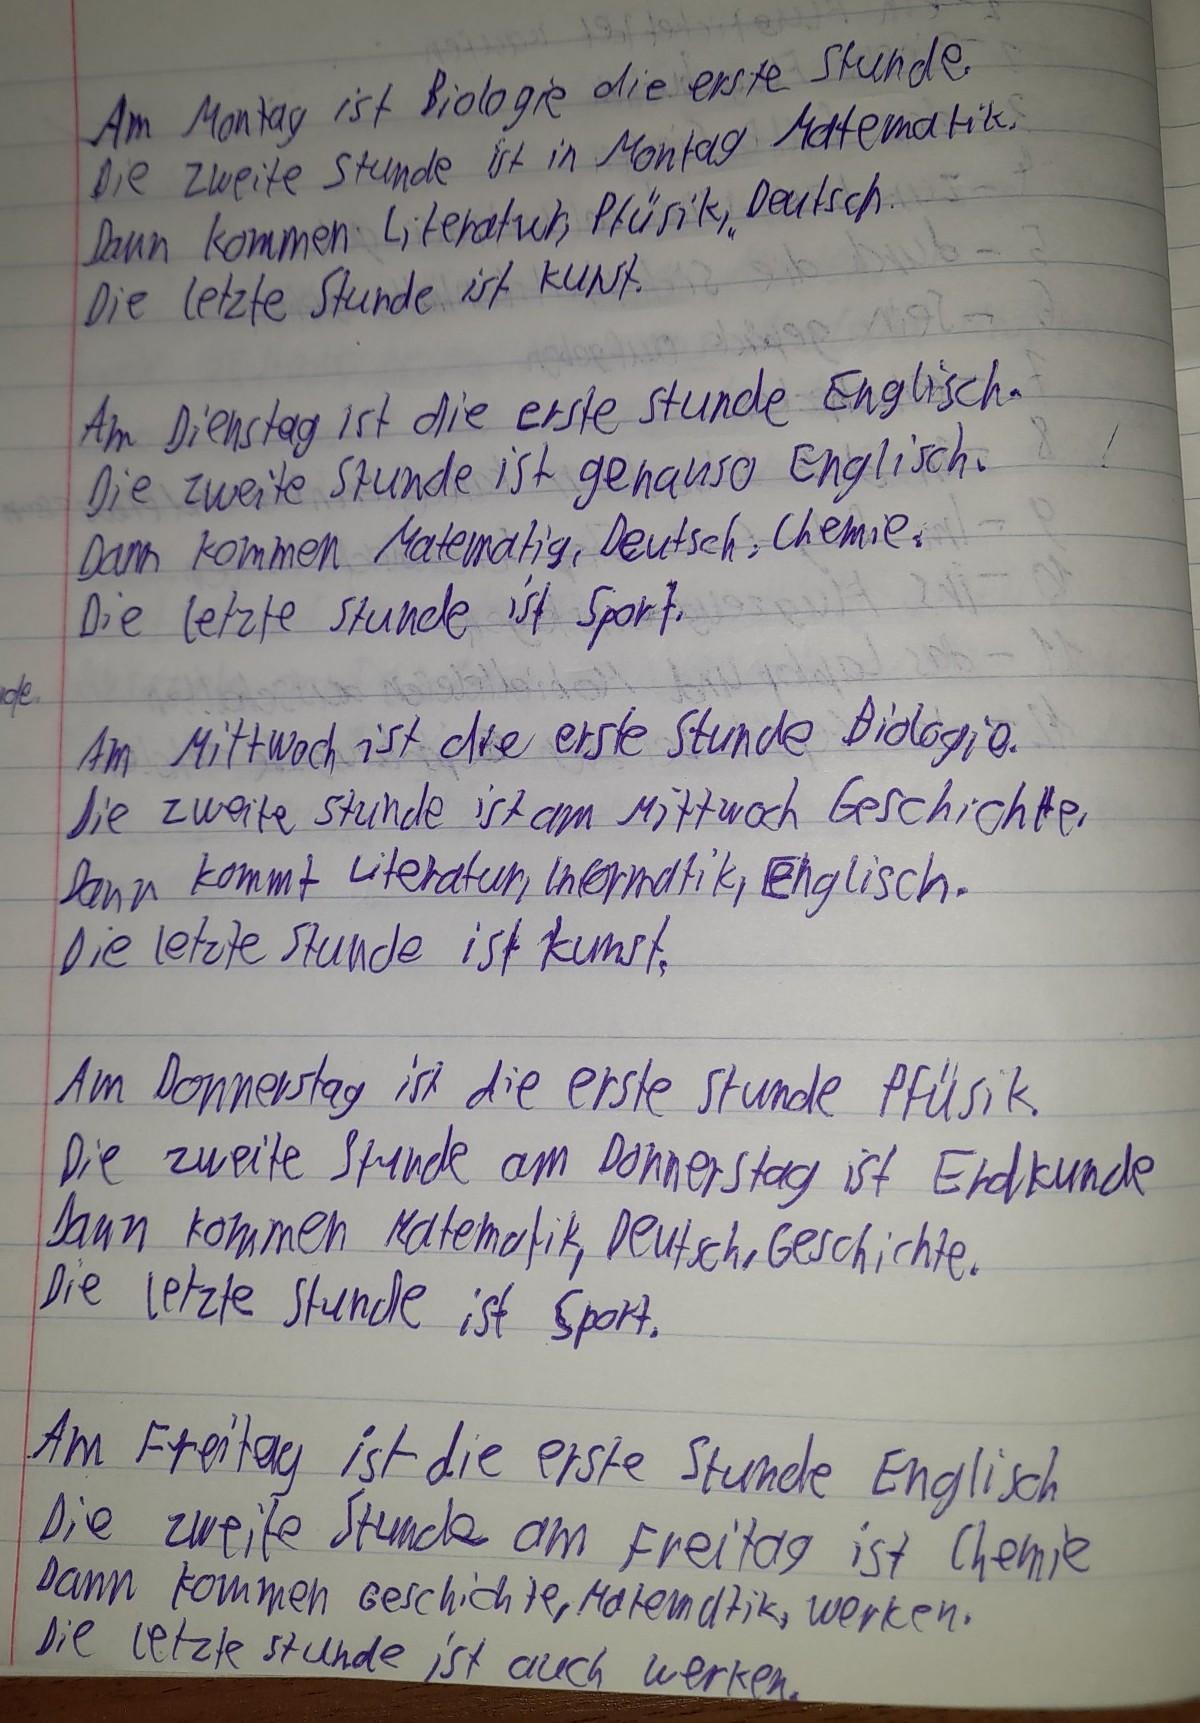 Am Montag ist Biologie die erste Stunde.
Die zweite Stunde ist in Montag Matematik.
Dann kommen Literatur, Pfüsik, Deutsch.
Die letzte Stunde ist kunst.
Am Dienstag ist die erste stunde Englisch.
Die zweite Stunde ist genauso Englisch.
Dann kommen Matematig, Deutsch, Chemie.
Die letzte stunde ist Sport.
de.
Am Mittwoch ist die erste Stunde Biologie.
Die zweite stunde ist am Mittwoch Geschichte.
Dann kommt Literatur, Informatik, Englisch.
Die letzte Stunde ist kunst.
Am Donnerstag ist die erste stunde Pfüsik.
Die zweite Stunde am Donnerstag ist Erdkunde
Dann kommen Matematik, Deutsch, Geschichte.
Die letzte Stunde ist Sport.
Am Freitag ist die erste Stunde Englisch
Die zweite Stunde am Freitag ist Chemie
Dann kommen Geschichte, Matematik, werken.
Die letzte stunde ist auch werken.